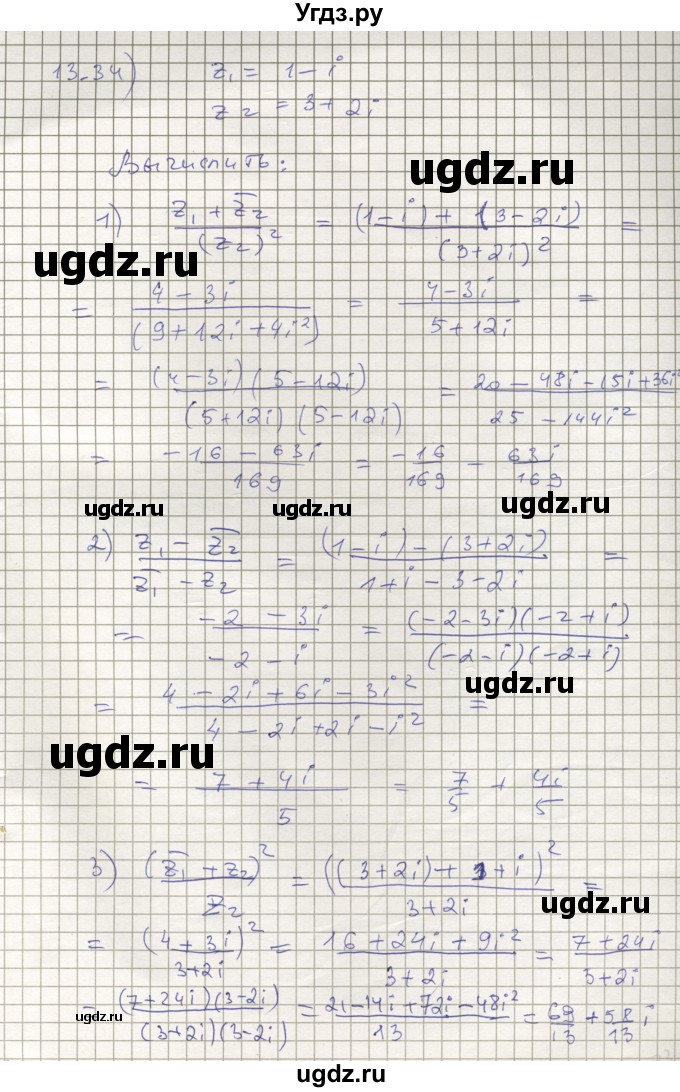 Угдз.ру
13.34) z₁ = 1 - i
z₂ = 3 + 2i
ugdz.ru
Вычислить:
1) (z₁ + z̅₂)/(z₂)² = ((1 - i) + (3 - 2i))/(3 + 2i)² =
ugdz.ru
= (4 - 3i)/(9 + 12i + 4i²) = (4 - 3i)/(5 + 12i) =
= ((4 - 3i)(5 - 12i))/((5 + 12i)(5 - 12i)) = (20 - 48i - 15i + 36i²)/(25 - 144i²)
= (-16 - 63i)/169 = -16/169 - 63i/169
ugdz.ru ugdz.ru ugdz.ru
2) (z₁ - z̅₂)/(z̅₁ - z₂) = ((1 - i) - (3 + 2i))/(1 + i - 3 - 2i) =
= (-2 - 3i)/(-2 - i) = ((-2 - 3i)(-2 + i))/((-2 - i)(-2 + i))
ugdz.ru
= (4 - 2i + 6i - 3i²)/(4 - 2i + 2i - i²) =
ugdz.ru
= (7 + 4i)/5 = 7/5 + 4i/5
3) (z̅₁ + z₂)²/z₂ = ((3 + 2i) + 1 + i)²/(3 + 2i) =
ugdz.ru
= (4 + 3i)²/(3 + 2i) = (16 + 24i + 9i²)/(3 + 2i) = (7 + 24i)/(3 + 2i)
= ((7 + 24i)(3 - 2i))/((3 + 2i)(3 - 2i)) = (21 - 14i + 72i - 48i²)/13 = 69/13 + 58/13 i
ugdz.ru ugdz.ru ugdz.ru